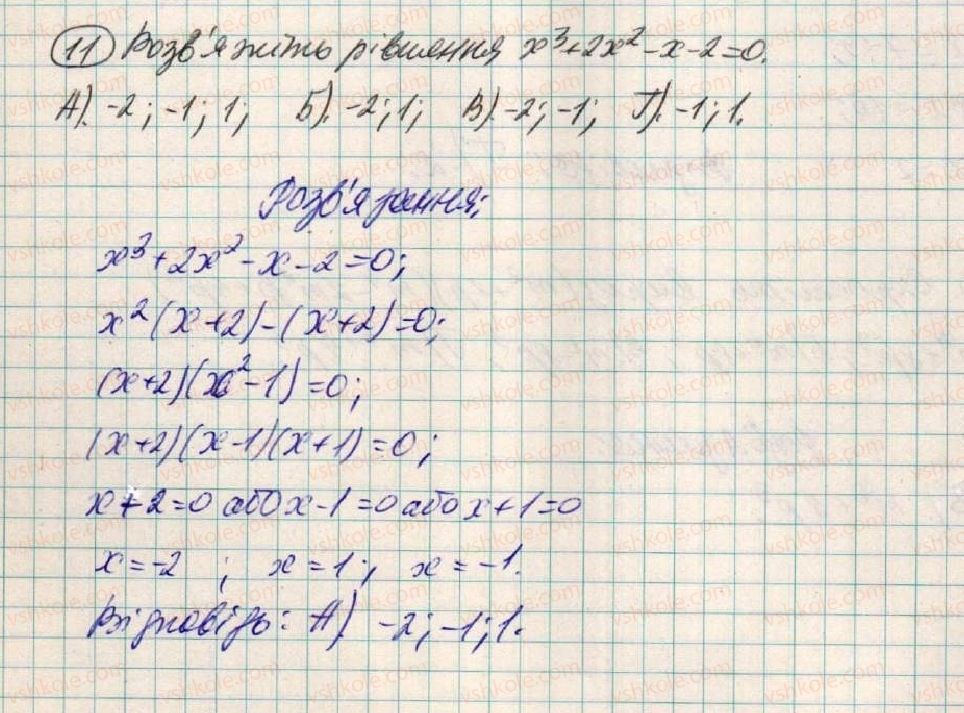 11 Розв'яжіть рівняння x³+2x²-x-2=0.
А). -2; -1; 1; Б). -2; 1; В). -2; -1; Г). -1; 1.
Розв'язання:
x³+2x²-x-2=0;
x²(x+2)-(x+2)=0;
(x+2)(x²-1)=0;
(x+2)(x-1)(x+1)=0;
x+2=0 або x-1=0 або x+1=0
x=-2 ; x=1; x=-1.
Відповідь: А) -2; -1; 1.